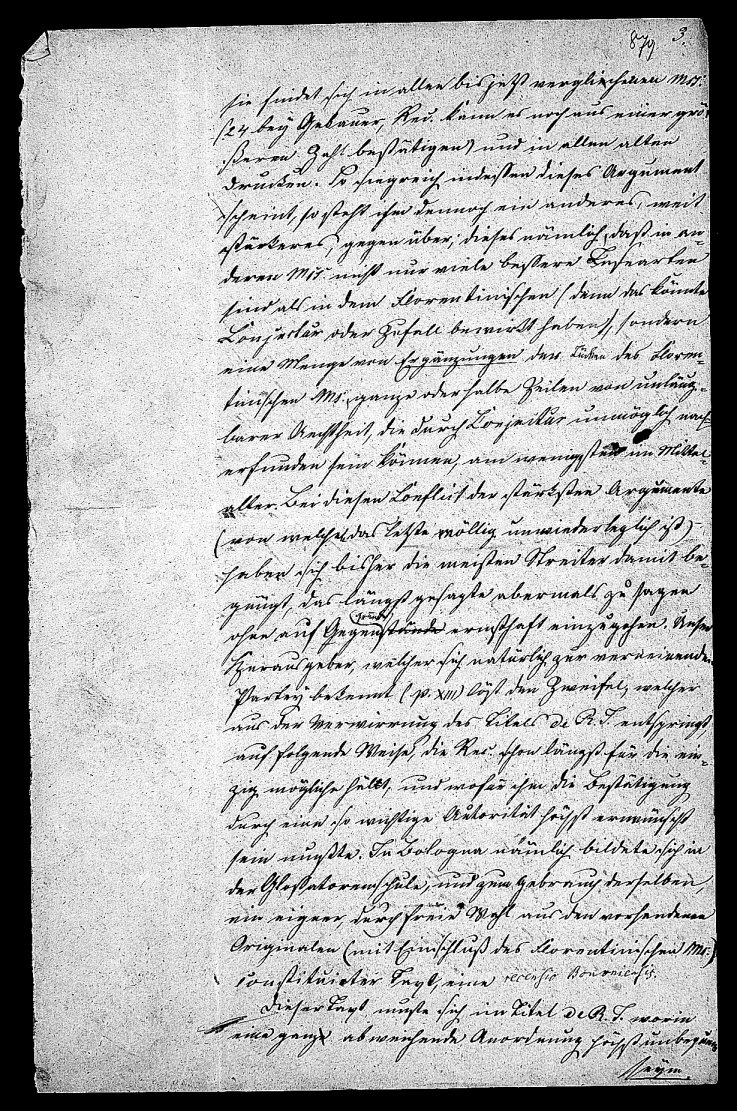 879 3.
sie findet sich in allen bis jetzt verglichenen Mss.
(24 bey Gebauer, Rec. kann es noch aus einer grö-
ßeren Zahl bestätigen) und in allen alten
Drucken. So siegreich indessen dieses Argument
scheint, so steht ihm dennoch ein anderes, weit
stärkeres, gegen über; dieses nämlich, daß in an-
deren Mss. nicht nur viele bessere Lesearten
sind als in dem Florentinischen (denn das könnte
Conjectur oder Zufall bewirkt haben), sondern
eine Menge von Ergänzungen der Lücken des Floren-
tinischen Ms., ganze oder halbe Zeilen von unläug-
barer Aechtheit, die durch Conjectur unmöglich nach-
erfunden sein können, am wenigsten im Mittel-
alter. Bei diesem Conflict der stärksten Argumente
(von welchen das letzte völlig unwiederleglich ist)
haben sich bisher die meisten Streiter damit be-
gnügt, das längst gesagte abermals zu sagen
gründe
ohne auf Gegenstände ernsthaft einzugehen. Unser
Herausgeber, welcher sich natürlich zur verneinenden
Partey bekennt (p. XIII) löst den Zweifel, welcher
aus der Verwirrung des Titels de R. J. entspringt,
auf folgende Weise, die Rec. schon längst für die ein-
zig mögliche hält, und wofür ihm die Bestätigung
durch eine so wichtige Autorität höchst erwünscht
sein mußte. In Bologna nämlich bildete sich in
der Glossatorenschule, und zum Gebrauch derselben,
ein eigner, durch freie Wahl aus den vorhandenen
Originalen (mit Einschluß des Florentinischen Ms.)
constituirter Text, eine recensio Bononiensis.
Dieser Text mußte sich im Titel de R. J. worin
eine ganz abweichende Anordnung höchst unbequem